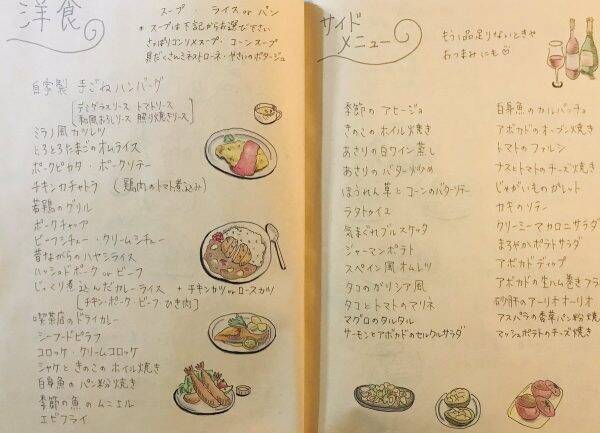 洋食
スープ・ライス or パン
* スープは下記からお選び下さい
さっぱりコンソメスープ・コーンスープ
具だくさんミネストローネ・やさいのポタージュ
自家製 手ごねハンバーグ
デミグラスソース トマトソース
和風おろしソース 照り焼きソース
ミラノ風カツレツ
とろとろたまごのオムライス
ポークピカタ・ポークソテー
チキンカチャトラ (鶏肉のトマト煮込み)
若鶏のグリル
ポークチャップ
ビーフシチュー・クリームシチュー
昔ながらのハヤシライス
ハッシュドポーク or ビーフ
じっくり煮込んだカレーライス + チキンカツ or ロースカツ
[チキン・ポーク・ビーフ・ひき肉]
喫茶店のドライカレー
シーフードピラフ
コロッケ・クリームコロッケ
シャケときのこのホイル焼き
白身魚のパン粉焼き
季節の魚のムニエル
エビフライ
サイドメニュー
もう1品足りないときや
おつまみにも♡
季節のアヒージョ
きのこのホイル焼き
あさりの白ワイン蒸し
あさりのバター炒め
ほうれん草とコーンのバターソテー
ラタトゥイユ
気まぐれブルスケッタ
ジャーマンポテト
スペイン風オムレツ
タコのガリシア風
タコとトマトのマリネ
マグロのタルタル
サーモンとアボカドのセルクルサラダ
白身魚のカルパッチョ
アボカドのオーブン焼き
トマトのファルシ
ナスとトマトのチーズ焼き
じゃがいものガレット
カキのソテー
クリーミーマカロニサラダ
まろやかポテトサラダ
アボカドディップ
アボカドの生ハム巻きフラ
砂肝のアーリオオーリオ
アスパラの香草パン粉焼
マッシュポテトのチーズ焼き